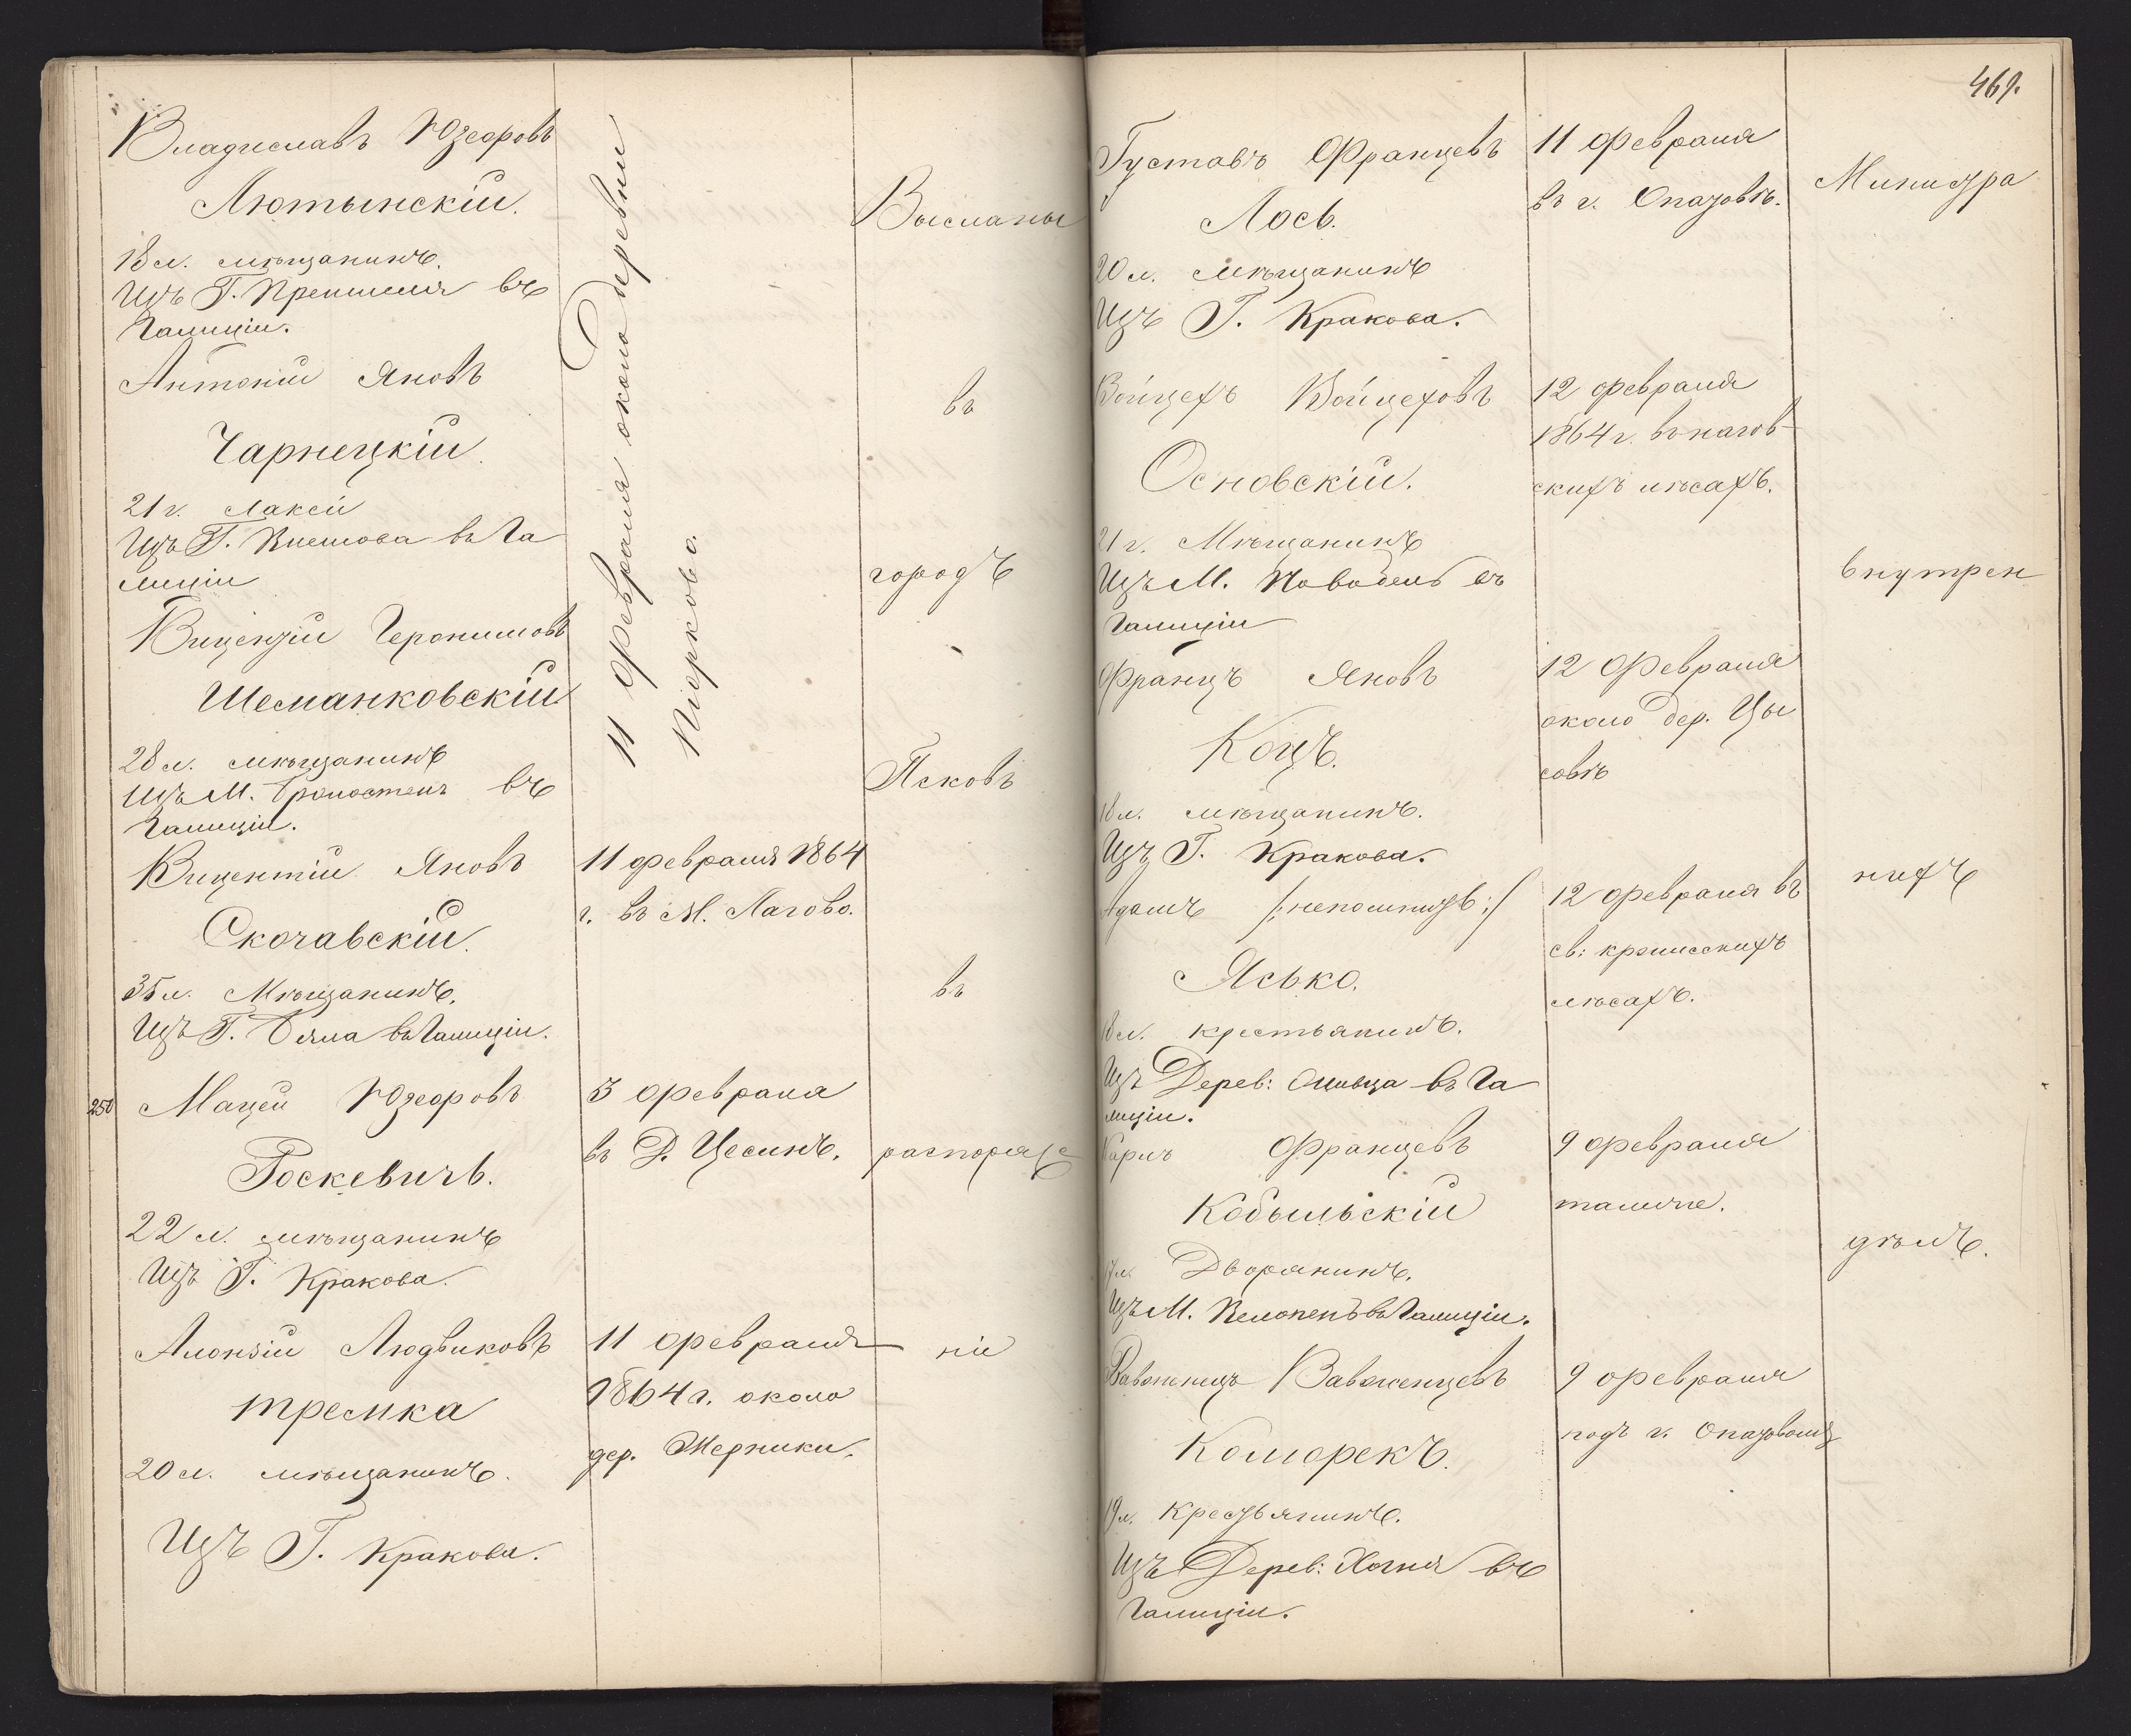 Владиславъ Юзефовъ
Лютынскій.
18 л. мѣщанинъ.
Изъ Г. Премишля въ
Галиціи.
Антоній Яновъ
Чарнецкій.
21 г. Лакей
Изъ Г. въ Га
лиціи
Виценцій Геронимовъ
Шеманковскій
28 л. мѣщанинъ
Изъ М. въ
Галиціи.
Вицентій Яновъ
Скочавскій.
35 л. Мѣщанинъ.
Изъ Г. Бяла въ Галиціи.
250 Мацей Юзефовъ
Роскевичъ.
22 л. мѣщанинъ
Изъ Г. Кракова.
Алоизій Людвиковъ
тремка
20 л. мѣщанинъ.
Изъ Г. Кракова.
11 февраля около Деревни
Піорково.
11 февраля 1864
г. въ М. Лагово.
3 февраля
въ Д. Цесинъ.
11 февраля
1864 г. около
дер. Жерники.
Высланы
въ
городъ
Псковъ
въ
распоряже
ніе
461.
Густавъ Францевъ
Лось.
20 л. мѣщанинъ
Изъ Г. Кракова.
Войцехъ Войцеховъ
Основскій.
21 г. Мѣщанинъ
Изъ М. въ
Галиціи
Францъ Яновъ
Коцъ.
18 л. мѣщанинъ.
Изъ Г. Кракова.
Адамъ /:непомнитъ:/
Ясько.
18 л. крестьянинъ.
Изъ Дерев: въ Га
лиціи.
Карлъ Францевъ
Кобыльскій
17 л. Дворянинъ.
Изъ М. въ Галиціи.
Вавженецъ Вавженцевъ
Коморекъ.
19 л. Крестьянинъ.
Изъ Дерев: въ
Галиціи.
11 февраля
въ г. Опатовѣ.
12 февраля
1864 г. въ лагов-
скихъ лѣсахъ.
12 февраля
около дер. Цы
совъ
12 февраля въ
св: крживскихъ
лѣсахъ.
9 февраля
тамже.
9 февраля
подъ г. Опатовомъ
Министра
внутрен
нихъ
дѣлъ.